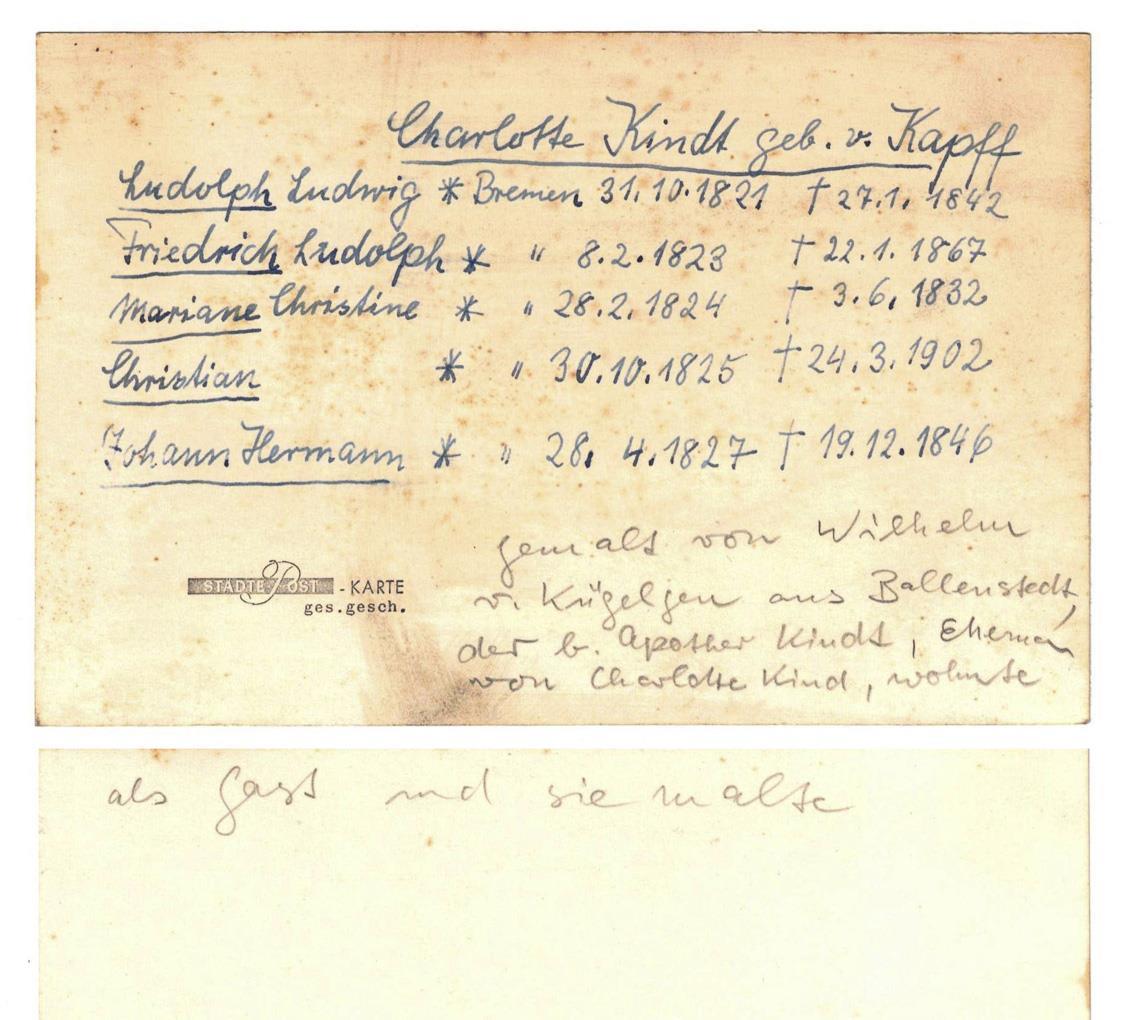 Charlotte Kindt geb. v. Kapff
Ludolph Ludwig * Bremen 31.10.1821 † 27.1.1842
Friedrich Ludolph * " 8.2.1823 † 22.1.1867
Mariane Christine * " 28.2.1824 † 3.6.1832
Christian * " 30.10.1825 † 24.3.1902
Johann Hermann * " 28.4.1827 † 19.12.1846
gemalt von Wilhelm
v. Kügelgen aus Ballenstedt,
der b. Apother Kindt, Eheman
von Charlotte Kind, wohnte
STÄDTE-POST-KARTE
ges.gesch.
als Gast und sie malte